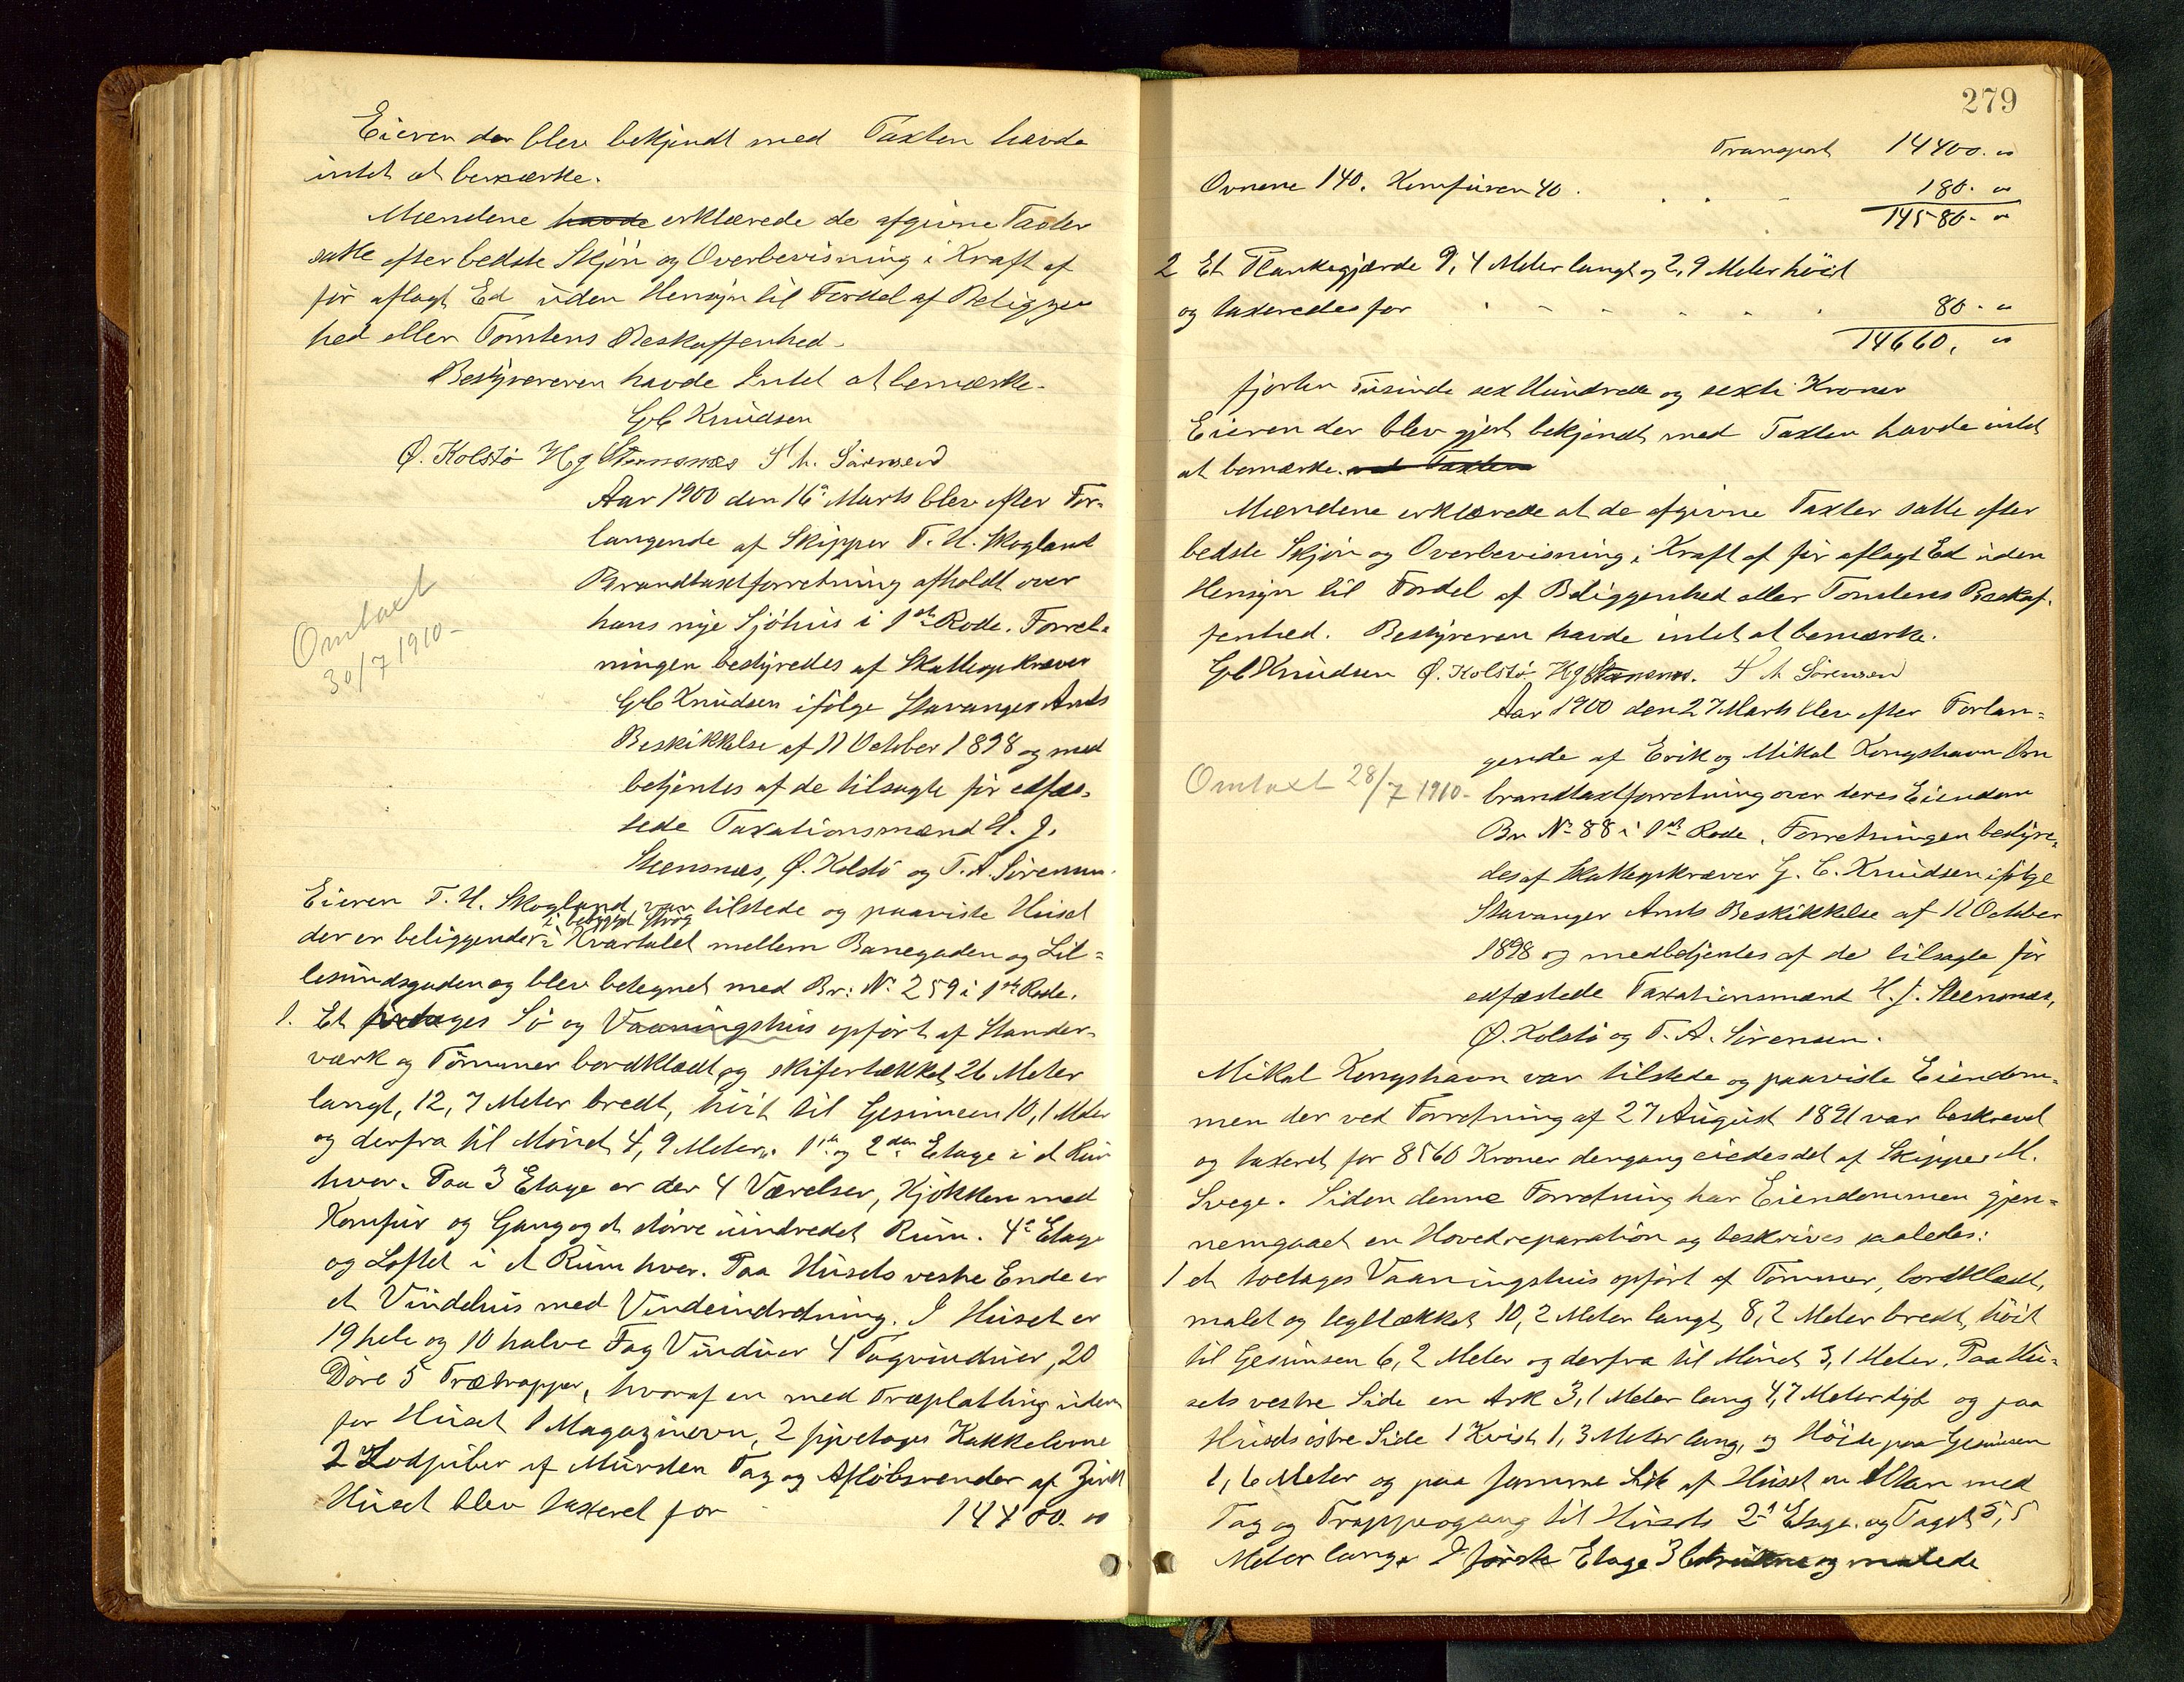 Eieren der blev bekjendt med Taxten havde
intet at bemærke.
Mændene havde erklærede de afgivne Taxter
satte efter bedste Skjön og Overbevisning i Kraft af
för aflagt Ed uden Hensyn til Fordel af Beliggen
hed eller Tomtens Beskaffenhed.
Bestyreren havde Intet at bemærke.
G C Knudsen
Ø. Kolstö H J Steensnæs T A. Sörensen
Aar 1900 den 16de Marts blev efter For-
langende af Skipper T. H. Skogland
Brandtaxtforretning afholdt over
hans nye Sjöhus i 1ste Rode. Forret-
ningen bestyredes af Skatteopkræver
G C Knudsen ifölge Stavanger Amts
Beskikkelse af 11 October 1898 og med
betjentes af de tilsagte för edfæs-
tede Taxationsmænd H. J.
Steensnæs, Ø. Kolstö og T. A. Sörensen.
Omtaxt
30/7 1910-
Eieren T. H. Skogland var tilstede og paaviste Huset
i bebygget Strög
der er beliggende i Kvartalet mellem Banegaden og Lil-
lesundsgaden og blev betegnet med Br: No 259 i 1ste Rode.
1. Et firetages Sö og Vaaningshus opfört af Stander-
værk og Tömmer bordklædt og skifertækket 26 Meter
langt, 12,7 Meter bredt, höit til Gesimsen 10,1 Meter
og derfra til Mönet 4,9 Meter. 1ste og 2den Etage i et Rum
hver. Paa 3 Etage er der 4 Værelser, Kjökken med
Komfur og Gang og et större uindredet Rum. 4de Etage
og Loftet i et Rum hver. Paa Husets vestre Ende er
et Vindehus med Vindeindretning. I Huset er
19 hele og 10 halve Fag Vinduer 4 Tagvinduer, 20
Döre 5 Trætrapper, hvoraf en med Træplatting uden
for Huset 1 Magazinovn, 2 firetages Kakkelovne
2 Lodpiber af Mursten Tag og Aflöbsrender af Zink
Huset blev taxeret for 14400. "
279
Transport 14400. "
Ovnene 140. Komfuren 40. 180. "
14580. "
2 Et Plankegjærde 9,4 Meter langt og 2,9 Meter höit
og taxeredes for 80. "
14660. "
fjorten Tusinde sex Hundrede og sexti Kroner
Eieren der blev gjort bekjendt med Taxten havde intet
at bemærke. ved Taxten
Mændene erklærede at de afgivne Taxter satte efter
bedste Skjön og Overbevisning i Kraft af för aflagt Ed uden
Hensyn til Fordel af Beliggenhed eller Tomtens Beskaf-
fenhed. Bestyreren havde intet at bemærke.
G C Knudsen Ø. Kolstö H J Steensnæs. T A Sörensen
Aar 1900 den 27 Marts blev efter Forlan-
gende af Erik og Mikal Kongshavn Om
brandtaxtforretning over deres Eiendom
Br No 88 i 1ste Rode. Forretningen bestyre-
des af Skatteopkræver G. C. Knudsen ifölge
Stavanger Amts Beskikkelse af 11 October
1898 og medbetjentes af de tilsagte för
edfæstede Taxationsmænd H. J. Steensnæs,
Ø. Kolstö og T. A. Sörensen.
Omtaxt 28/7 1910-
Mikal Kongshavn var tilstede og paaviste Eiendom-
men der ved Forretning af 27 August 1891 var beskrevet
og taxeret for 8560 Kroner dengang eiedes det af Skipper M.
Svege. Siden denne Forretning har Eiendommen gjen-
nemgaaet en Hovedreparation og beskrives saaledes:
1 et toetages Vaaningshus opfört af Tömmer, bordklædt,
malet og tegltækket 10,2 Meter langt, 8,2 Meter bredt, höit
til Gesimsen 6,2 Meter og derfra til Mönet 3,1 Meter. Paa Hu-
sets vestre Side en Ark 3,1 Meter lang 4,7 Meter dyb og paa
Husets östre Side 1 Kvist 1,3 Meter lang, og Höide paa Gesimsen
1,6 Meter og paa samme Side af Huset en Altan med
Tag og Trappeogang til Husets 2den Etage og Taget 5,5
Meter lang. I förste Etage 3 betrukne og malede